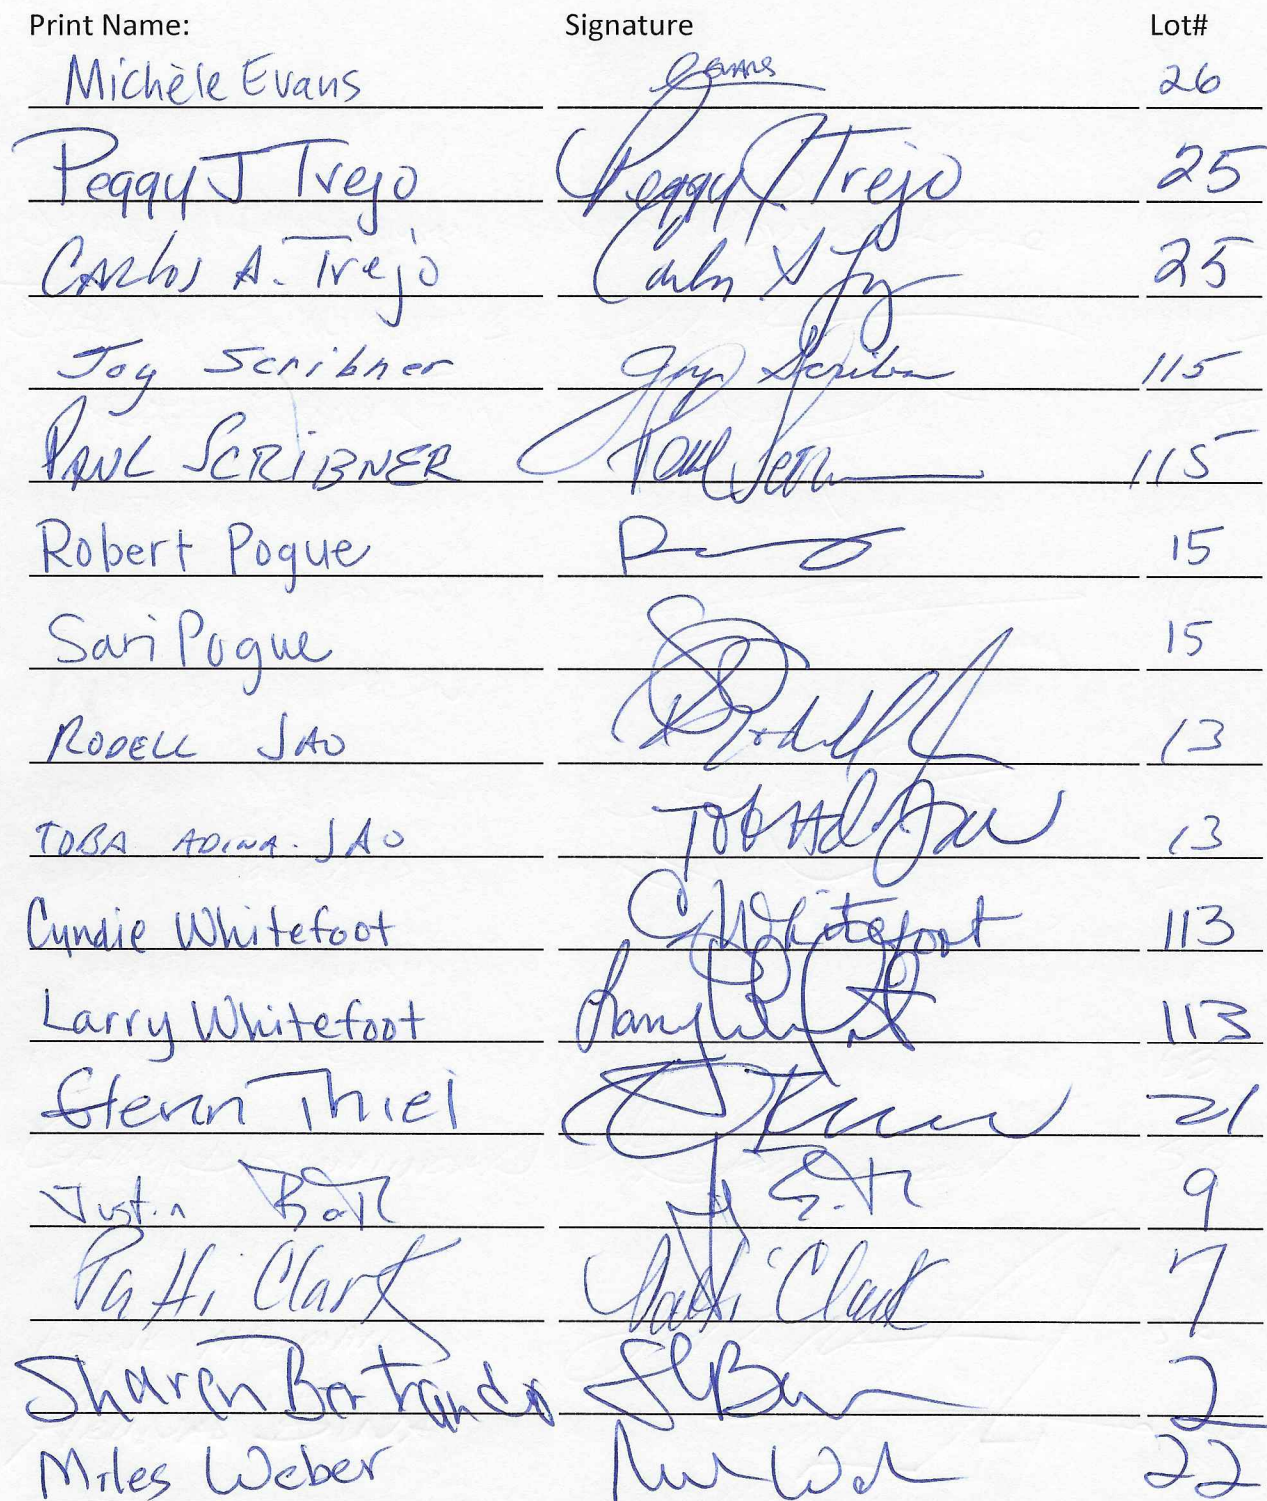 Print Name: Signature Lot#
Michèle Evans Evans 26
Peggy J Trejo Peggy J Trejo 25
Carlos A. Trejo Carlos A 25
Joy Scribner Joy Scribner 115
PAUL SCRIBNER Paul 115
Robert Pogue 15
Sari Pogue 15
RODELL JAO Rodell 13
TOBA ADINA JAO Jao 13
Cyndie Whitefoot C Whitefoot 113
Larry Whitefoot Larry 113
Glenn Thiel 21
Justin 9
Patti Clark Patti Clark 7
Sharon Bertrando 2
Miles Weber 22